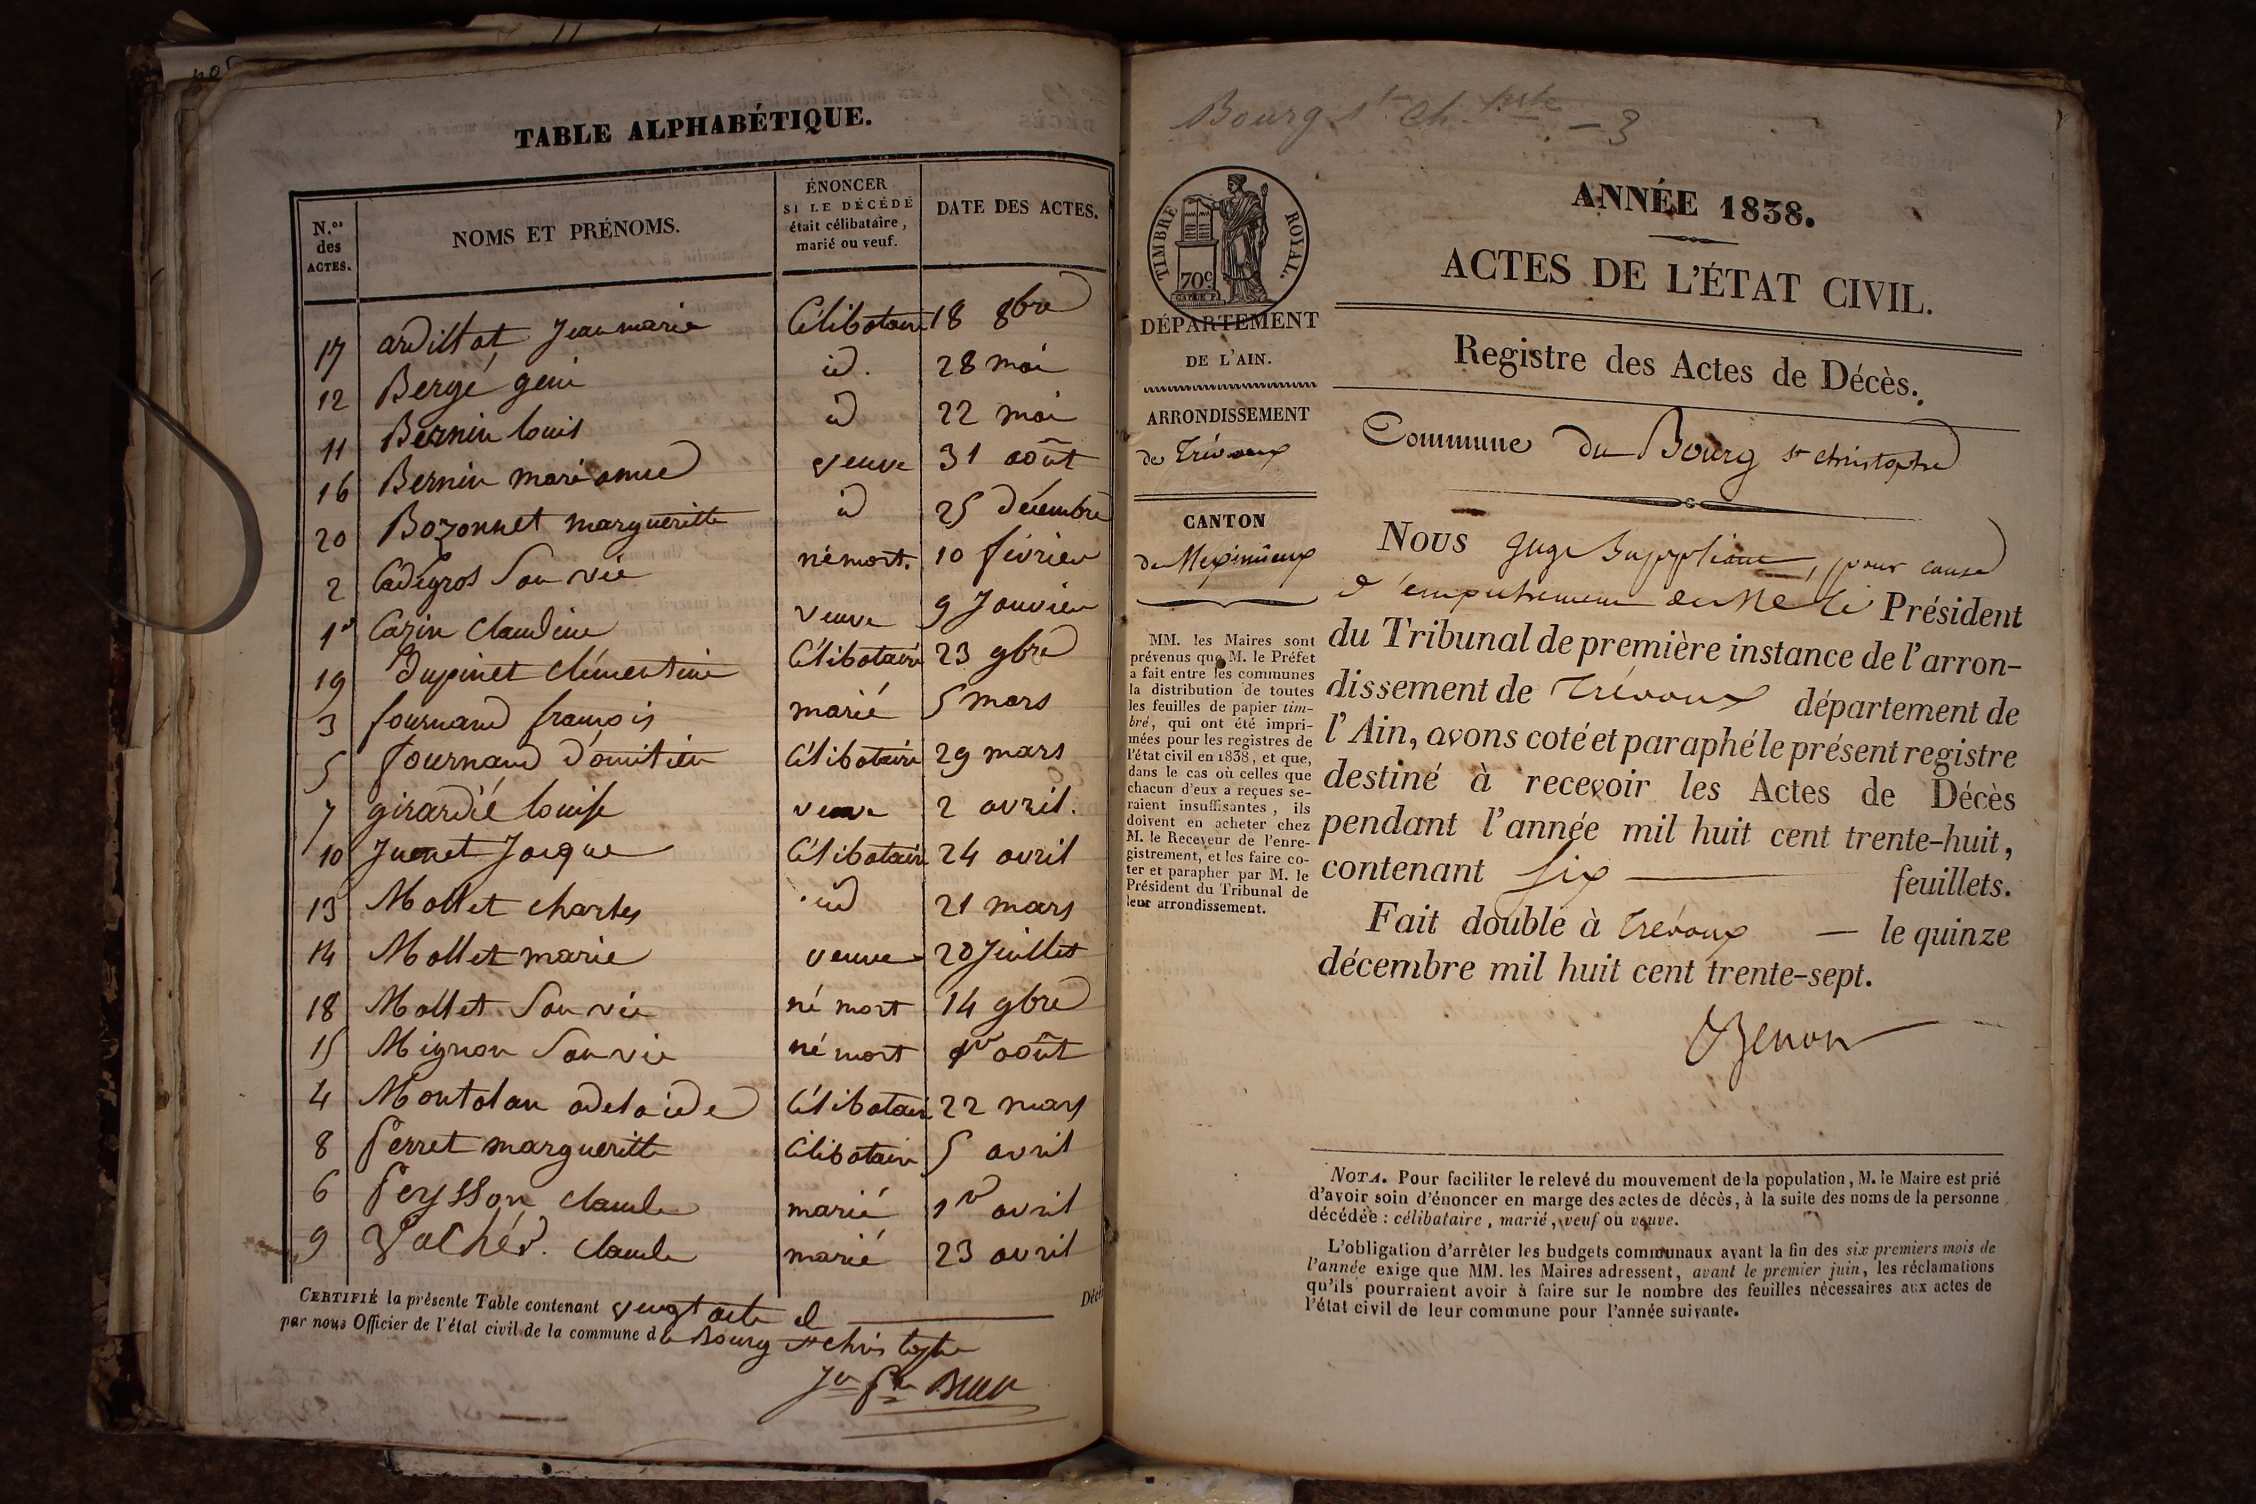 TABLE ALPHABÉTIQUE.
N.os des ACTES.
NOMS ET PRÉNOMS.
ÉNONCER SI LE DÉCÉDÉ était célibataire, marié ou veuf.
DATE DES ACTES.
17 ardillat Jean marie Célibataire 18 8bre
12 Bergé geni id. 28 mai
11 Bernin louis id 22 mai
16 Bernin marianne veuve 31 août
20 Bozonnet margueritte id 25 décembre
2 Cadegros San vie né mort. 10 février
1er Carin claudine veuve 9 Janvier
19 Dupinet clémentine Célibataire 23 9bre
3 fournand françois marié 5 mars
5 fournand Domitien Célibataire 29 mars
7 girardié louise veuve 2 avril.
10 Juenet Jacque Célibataire 24 avril
13 Mollet charles id 21 mars
14 Mollet marie veuve 20 Juillet
18 Mollet San vie né mort 14 9bre
15 Mignon San vie né mort 1er août
4 Montolan adelaide Célibataire 22 mars
8 Perret margueritte Célibataire 5 avril
6 Peysson claude marié 1er avril
9 Vaché claude marié 23 avril
CERTIFIÉ la présente Table contenant vengt acte
par nous Officier de l'état civil de la commune de Bourg st christophe
Bourg St Ch. – 3
TIMBRE ROYAL.
70c
ANNÉE 1838.
ACTES DE L'ÉTAT CIVIL.
Registre des Actes de Décès.
DÉPARTEMENT
DE L'AIN.
ARRONDISSEMENT
de Trévoux
CANTON
de Meximieux
MM. les Maires sont
prévenus que M. le Préfet
a fait entre les communes
la distribution de toutes
les feuilles de papier tim-
bré, qui ont été impri-
mées pour les registres de
l'état civil en 1838, et que,
dans le cas où celles que
chacun d'eux a reçues se-
raient insuffisantes, ils
doivent en acheter chez
M. le Receveur de l'enre-
gistrement, et les faire co-
ter et parapher par M. le
Président du Tribunal de
leur arrondissement.
Commune du Bourg st christophe
Nous Juge Suppléant, pour cause
d'empêchement de Mr le Président
du Tribunal de première instance de l'arron-
dissement de Trévoux département de
l'Ain, avons coté et paraphé le présent registre
destiné à recevoir les Actes de Décès
pendant l'année mil huit cent trente-huit,
contenant Six feuillets.
Fait double à Trévoux — le quinze
décembre mil huit cent trente-sept.
NOTA. Pour faciliter le relevé du mouvement de la population, M. le Maire est prié
d'avoir soin d'énoncer en marge des actes de décès, à la suite des noms de la personne
décédée : célibataire, marié, veuf ou veuve.
L'obligation d'arrêter les budgets communaux avant la fin des six premiers mois de
l'année exige que MM. les Maires adressent, avant le premier juin, les réclamations
qu'ils pourraient avoir à faire sur le nombre des feuilles nécessaires aux actes de
l'état civil de leur commune pour l'année suivante.